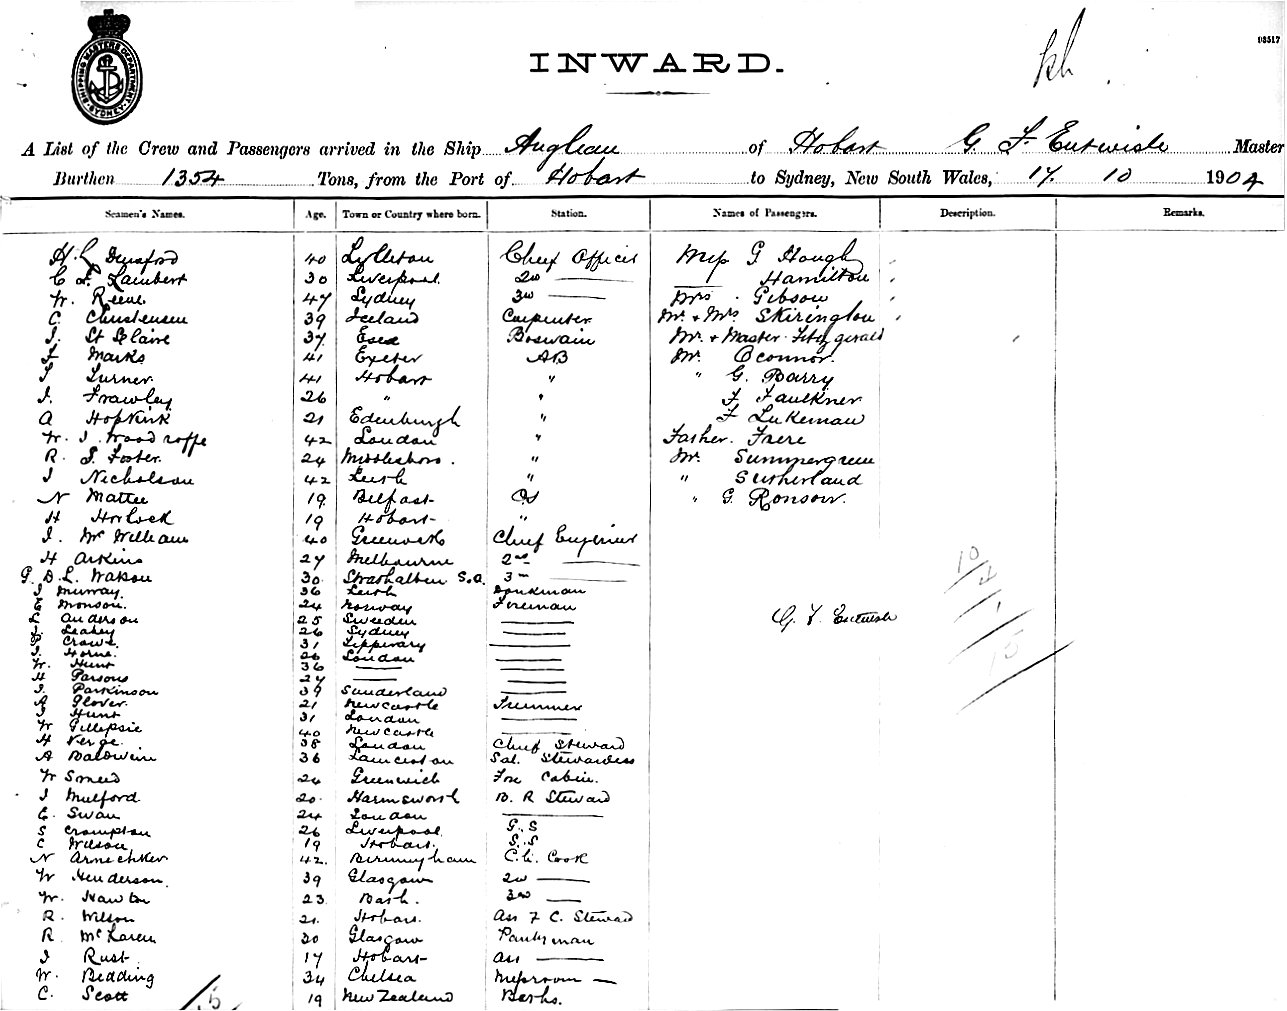 SHIPPING MASTERS DEPARTMENT SYDNEY
03517
INWARD.
A List of the Crew and Passengers arrived in the Ship Anglian of Hobart G. F. Entwisle Master
Burthen 1354 Tons, from the Port of Hobart to Sydney, New South Wales, 17. 10 1904
Seamen's Names. Age. Town or Country where born. Station. Names of Passengers. Description. Remarks.
40 Lyttleton Chief Officer Miss G Hough
C Lambert 30 Liverpool 2nd Hamilton
W. Reene 47 Sydney 3rd Mrs. Gibson
C. Christensen 39 Iceland Carpenter Mr. & Mrs. Skirington
J. St Blaire 37 Boswain Mr. & Master Fitzgerald
Marks 41 Exeter AB Mr. Oconnor.
Turner. 41 Hobart " " G. Barry
J. Frawley 26 " " F Faulkner
A Hopkirk 21 Edenburgh " F Lukeman
W. J. Woodroffe 42 London " Father. Frere
R. S. Foster. 24 Middlesboro. " Mr. Summergreen
J Nicholson 42 Leith " " Sutherland
N Mattee 19 Belfast OS " G. Ronson.
H Horlock 19 Hobart "
J. Mc William 40 Greenock Chief Engineer
H Arkins 27 Melbourne 2nd
G. D. L. Watson 30. Strathalben S.A. 3rd
J Murray. 36 Leith Donkman
E Monson. 24 Norway Fireman G. F. Entwisle
L Anderson 25 Sweden
J. Leahey 26 Sydney
P Crowe. 31 Tipperary
J. Horne. 26 London
W. Hunt 36
H Parsons 24
J. Parkinson 39 Sunderland
A Glover. 21 Newcastle Trimmer
J Hunt 31 London
W Gillepsie 40 Newcastle
H Verge. 38 London Chief Steward
A Baldwin 36 Launceston Sal. Stewardess
W Smeed 26 Greenwich Fore Cabin.
J Mulford. 20. Harmsworth B. R Steward
E. Swan 24 London
S Crompton 26 Liverpool. G. S
C Wilson, 19 Hobart. S. S
N 42. Birmingham Ch. Cook
W Henderson. 39 Glasgow 2nd
W. Hawton 23. Bath. 3rd
R. Wilson 21. Hobart. Ass F C. Steward
R McLaren 20 Glasgow Pantryman
J Rust. 17 Hobart Ass
W. Bedding 34 Chelsea Messroom
C. Scott 19 New Zealand Baths.
10/4
1
15